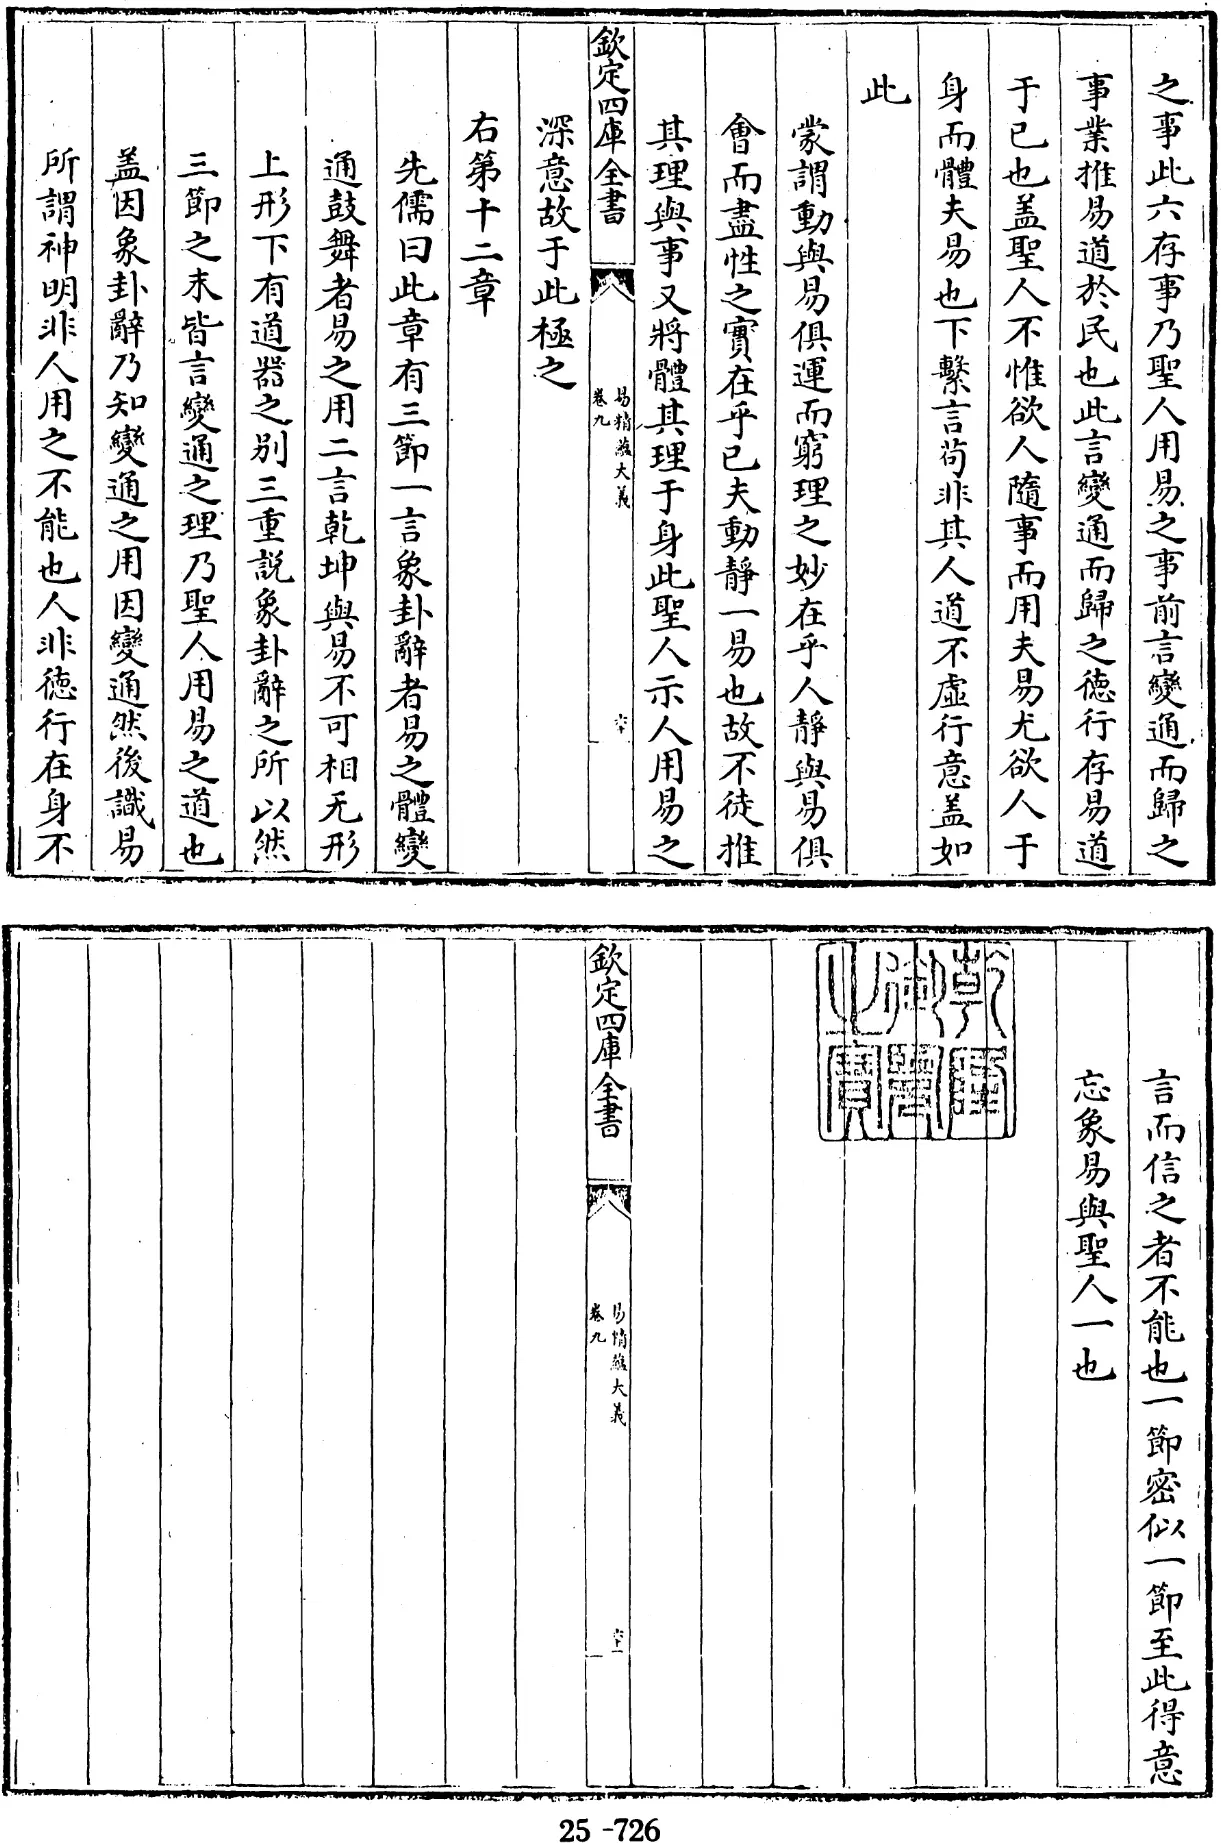 之事此六存事乃聖人用易之事前言變通而歸之
事業推易道於民也此言變通而歸之徳行存易道
于已也盖聖人不惟欲人隨事而用夫易尤欲人于
身而體夫易也下繫言苟非其人道不虚行意盖如
此
蒙謂動與易俱運而窮理之妙在乎人靜與易俱
會而盡性之實在乎已夫動靜一易也故不徒推
其理與事又將體其理于身此聖人示人用易之
欽定四庫全書
易精蘊大義
卷九
六十
深意故于此極之
右第十二章
先儒曰此章有三節一言象卦辭者易之體變
通鼓舞者易之用二言乾坤與易不可相无形
上形下有道器之别三重説象卦辭之所以然
三節之末皆言變通之理乃聖人用易之道也
盖因象卦辭乃知變通之用因變通然後識易
所謂神明非人用之不能也人非徳行在身不
言而信之者不能也一節密似一節至此得意
忘象易與聖人一也
乾隆御覽之寶
欽定四庫全書
易精蘊大義
卷九
六十一
25-726